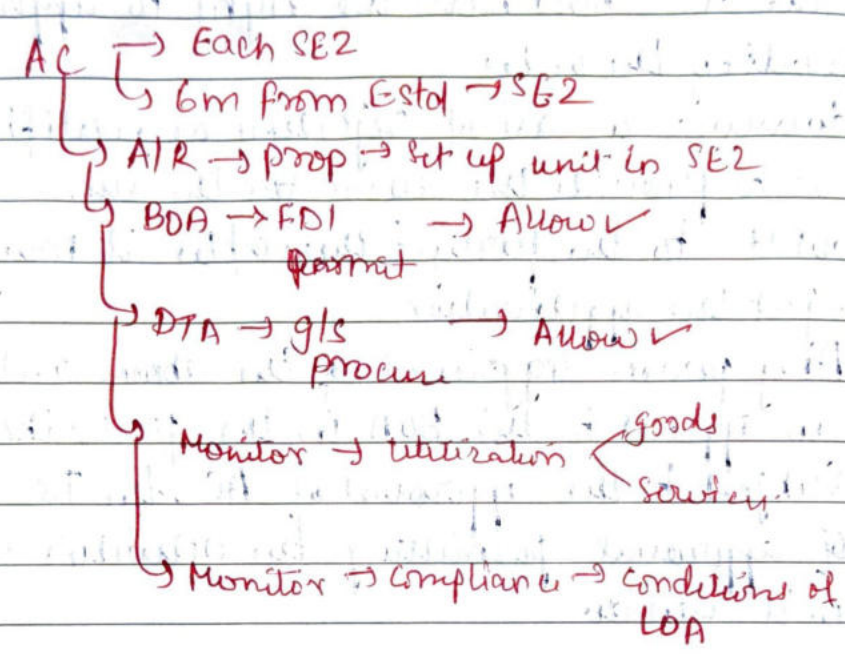 AC → Each SEZ
→ 6m from Estd → SEZ
→ A/R → prop → Set up unit in SEZ
→ BOA → FDI → Allow ✓
permit
→ DTA → g/s → Allow ✓
procure
→ Monitor → Utilization < goods
services
→ Monitor → Compliance → Conditions of
LOA